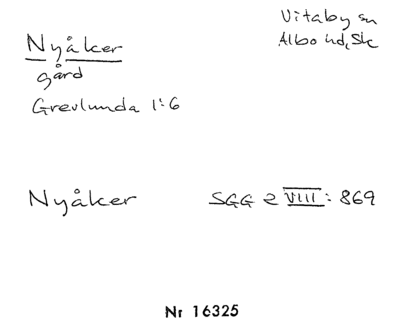 Nyåker
gård
Grevlunda 1:6
Vitaby sn
Albo hd, Sk
Nyåker SGG 2 VIII: 869
Nr 16325